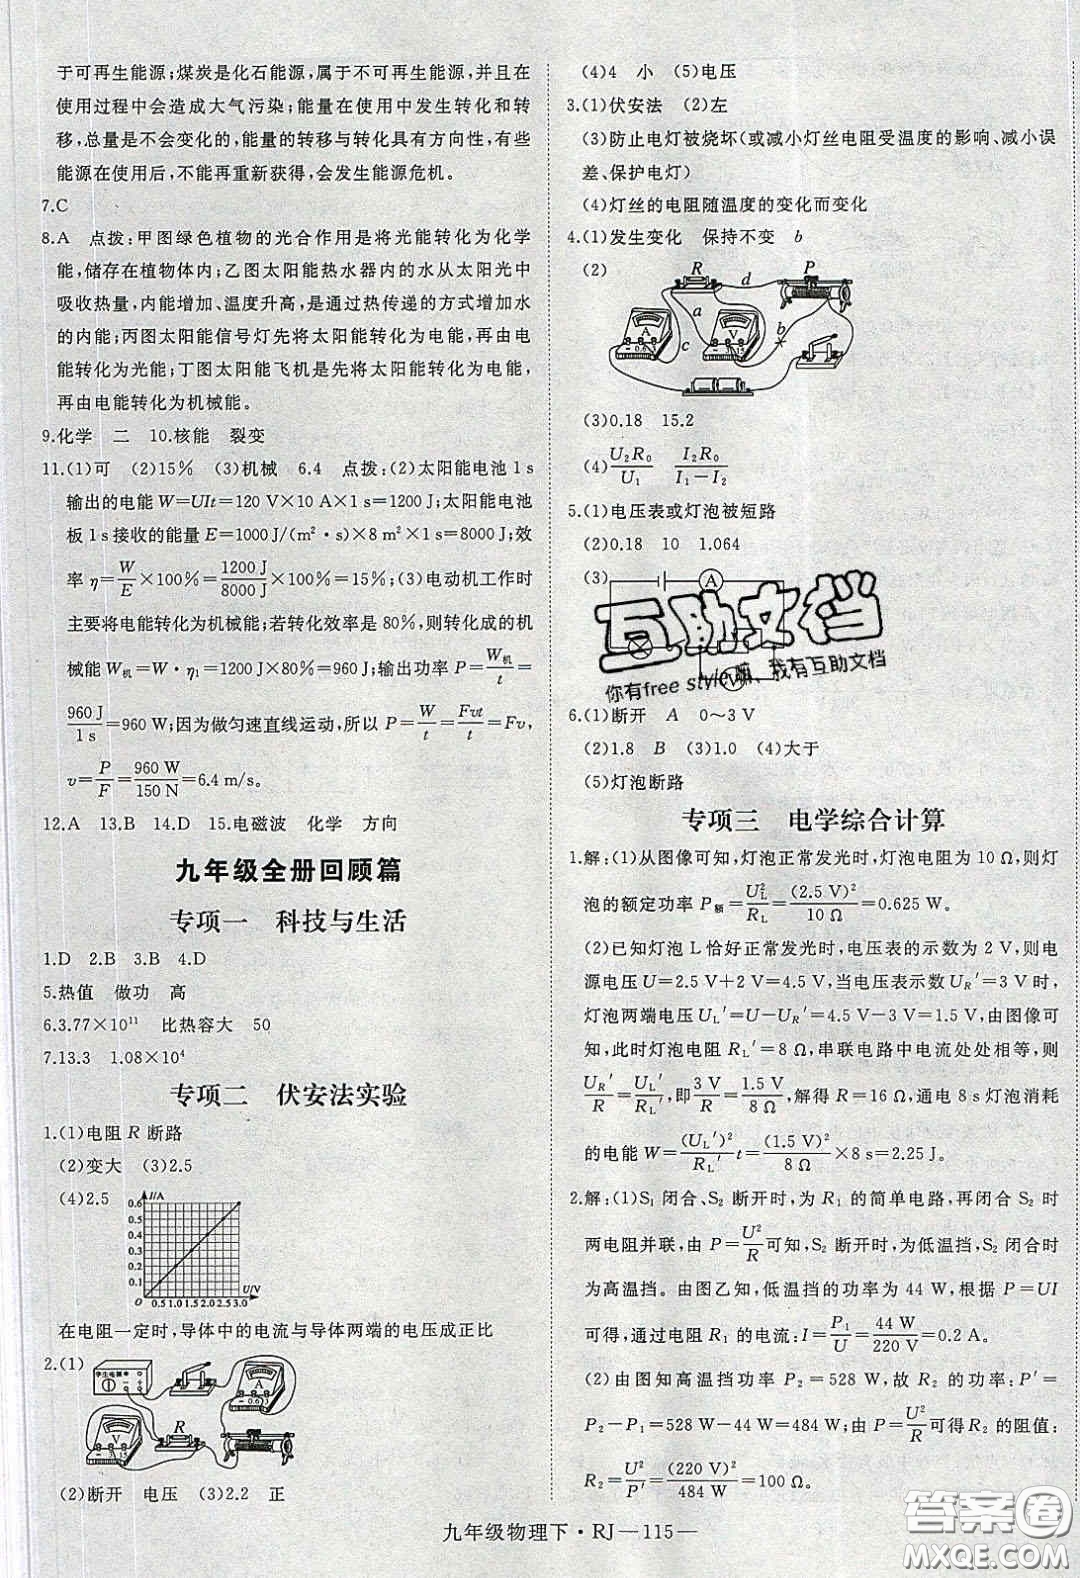 于可再生能源;煤炭是化石能源,属于不可再生能源,并且在
使用过程中会造成大气污染;能量在使用中发生转化和转
移,总量是不会变化的,能量的转移与转化具有方向性,有些
能源在使用后,不能再重新获得,会发生能源危机。
7.C
8.A 点拨:甲图绿色植物的光合作用是将光能转化为化学
能,储存在植物体内;乙图太阳能热水器中的水从太阳光中
吸收热量,内能增加、温度升高,是通过热传递的方式增加水
的内能;丙图太阳能信号灯先将太阳能转化为电能,再由电
能转化为光能;丁图太阳能飞机是先将太阳能转化为电能,
再由电能转化为机械能。
9.化学 二 10.核能 裂变
11.(1)可 (2)15% (3)机械 6.4 点拨:(2)太阳能电池1s
输出的电能W=UIt=120 V×10 A×1 s=1200 J;太阳能电池
板1s接收的能量E=1000 J/(m²·s)×8 m²×1 s=8000 J;效
率η=W/E×100%=1200 J/8000 J×100%=15%;(3)电动机工作时
主要将电能转化为机械能;若转化效率是80%,则转化成的机
械能W机=W·η₁=1200 J×80%=960 J;输出功率P=W机/t=
960 J/1 s=960 W;因为做匀速直线运动,所以P=W/t=Fvt/t=Fv,
v=P/F=960 W/150 N=6.4 m/s。
12.A 13.B 14.D 15.电磁波 化学 方向
九年级全册回顾篇
专项一 科技与生活
1.D 2.B 3.B 4.D
5.热值 做功 高
6.3.77×10¹¹ 比热容大 50
7.13.3 1.08×10⁴
专项二 伏安法实验
1.(1)电阻R断路
(2)变大 (3)2.5
(4)2.5
I/A
0.6
0.5
0.4
0.3
0.2
0.1
O 0.5 1.0 1.5 2.0 2.5 3.0 U/V
在电阻一定时,导体中的电流与导体两端的电压成正比
2.(1)
学生电源
A
V
R
(2)断开 电压 (3)2.2 正
(4)4 小 (5)电压
3.(1)伏安法 (2)左
(3)防止电灯被烧坏(或减小灯丝电阻受温度的影响、减小误
差、保护电灯)
(4)灯丝的电阻随温度的变化而变化
4.(1)发生变化 保持不变 b
(2)
R d P
a
A V b
c
(3)0.18 15.2
(4)U₂R₀/U₁ I₂R₀/(I₁−I₂)
5.(1)电压表或灯泡被短路
(2)0.18 10 1.064
(3)
A
V
互助文档
你有free style嘛、我有互助文档
6.(1)断开 A 0～3 V
(2)1.8 B (3)1.0 (4)大于
(5)灯泡断路
专项三 电学综合计算
1.解:(1)从图像可知,灯泡正常发光时,灯泡电阻为10 Ω,则灯
泡的额定功率P额=U_L²/R_L=(2.5 V)²/10 Ω=0.625 W。
(2)已知灯泡L恰好正常发光时,电压表的示数为2 V,则电
源电压U=2.5 V+2 V=4.5 V,当电压表示数U_R′=3 V时,
灯泡两端电压U_L′=U−U_R′=4.5 V−3 V=1.5 V,由图像可
知,此时灯泡电阻R_L′=8 Ω,串联电路中电流处处相等,则
U_R′/R=U_L′/R_L′,即3 V/R=1.5 V/8 Ω,解得R=16 Ω,通电8 s灯泡消耗
的电能W=(U_L′)²/R_L′t=(1.5 V)²/8 Ω×8 s=2.25 J。
2.解:(1)S₁闭合、S₂断开时,为R₁的简单电路,再闭合S₂时
两电阻并联,由P=U²/R可知,S₂断开时,为低温挡,S₂闭合时
为高温挡。由图乙知,低温挡的功率为44 W,根据P=UI
可得,通过电阻R₁的电流:I=P₁/U=44 W/220 V=0.2 A。
(2)由图知高温挡功率P₂=528 W,故R₂的功率:P′=
P₂−P₁=528 W−44 W=484 W;由P=U²/R可得R₂的阻值:
R₂=U²/P′=(220 V)²/484 W=100 Ω。
九年级物理下·RJ—115—
答案圈
MXQE.COM